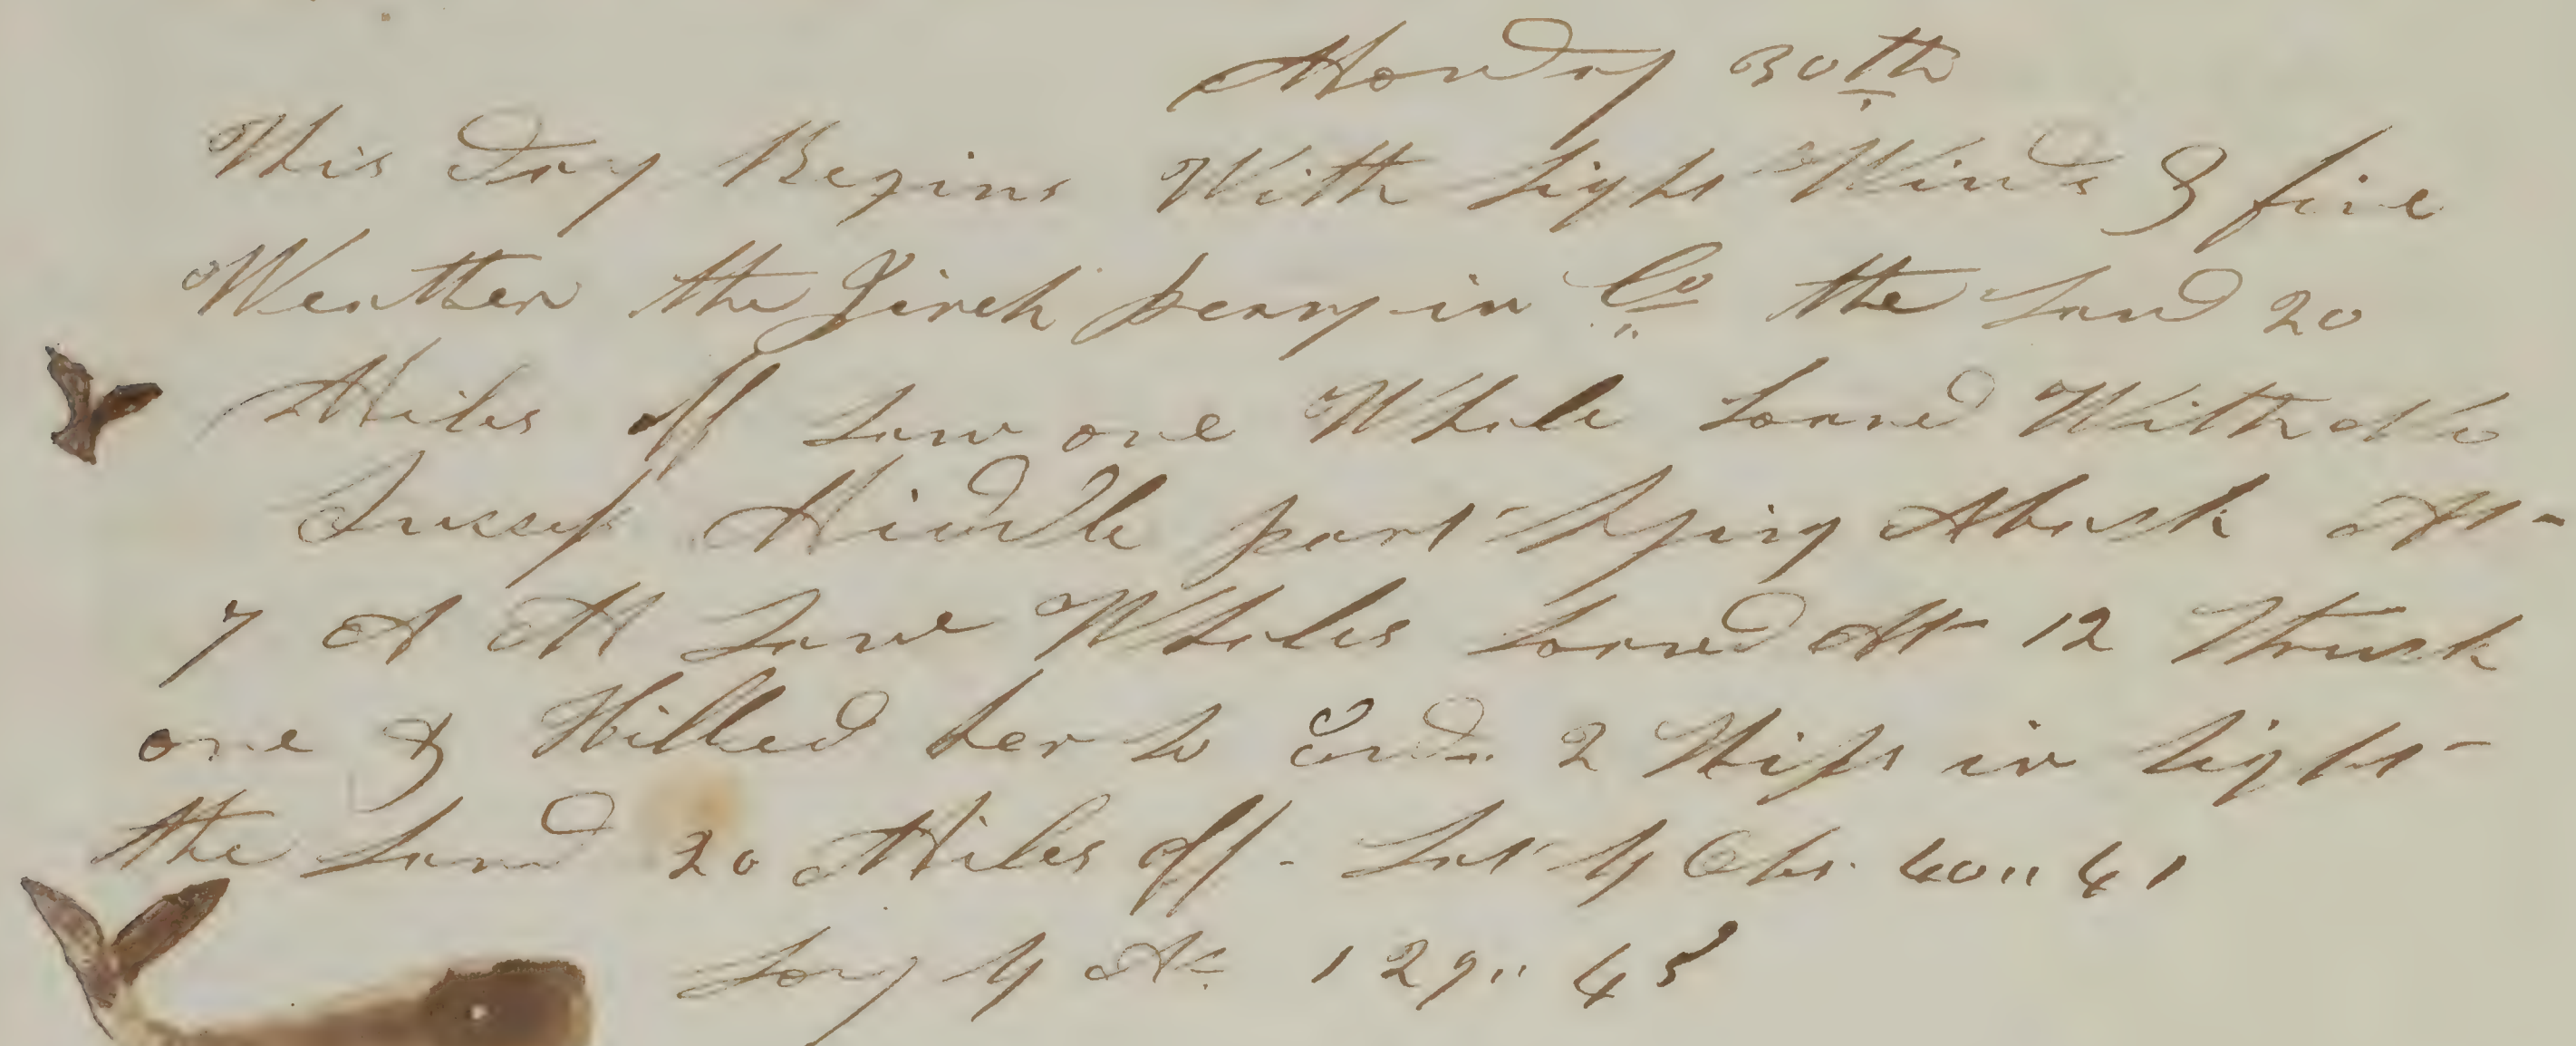 Monday 30th
This day Begins With light Winds & fine
Weather the Jireh perry in Co the Land 20
Miles off Saw one Whale Loared With No
Sucsess Middle part lying Aback At
7 A M Saw Whales Loared At 12 Struck
one & Killed her to Ends 2 Ships in Sight
the Land 20 Miles off - Lat by Obs 40" 41
Long by 129" 45